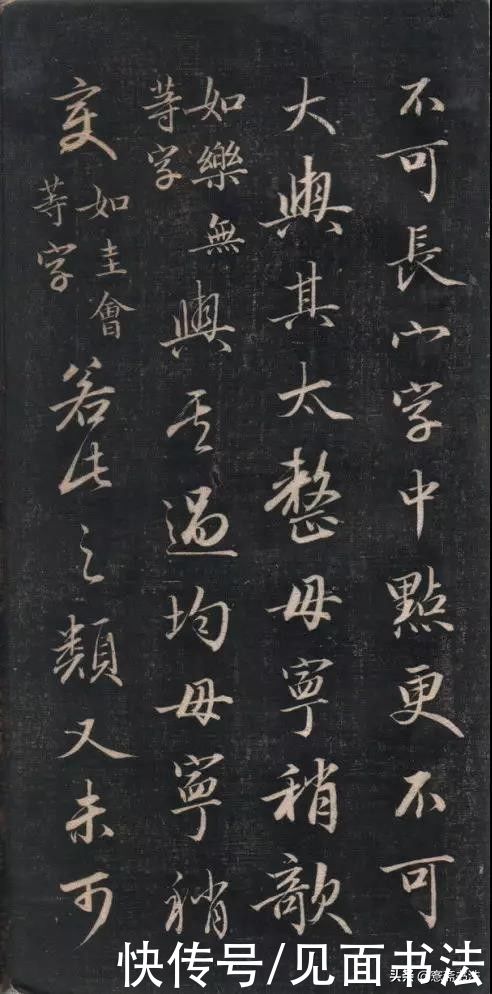 不可長宀字中點更不可
大與其太整毋寧稍欹
如樂無
等字
與其過均毋寧稍
变
如圭會
等字
若此之類又未可
快传号/见面书法